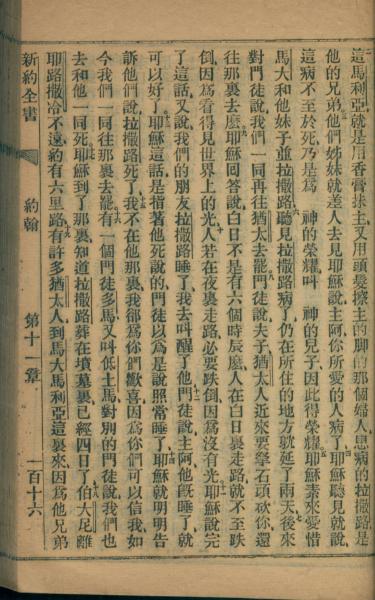 這馬利亞就是用香膏抹主、又用頭髮擦主的脚的那個婦人、患病的拉撒路是
他的兄弟、他們姊妹就差人去見耶穌說、主阿、你所愛的人病了、耶穌聽見就說、
這病不至於死、乃是爲　神的榮耀、叫　神的兒子因此得榮耀、耶穌素來愛惜
馬大和他妹子並拉撒路、聽見拉撒路病了、仍在所住的地方躭延了兩天、後來
對門徒說、我們一同再往猶太去罷、門徒說、夫子、猶太人近來要拏石頭砍你、還
往那裏去麽、耶穌回答說、白日不是有六個時辰麽、人在白日裏走路、就不至跌
倒、因爲看得見世界上的光、人若在夜裏走路、必要跌倒、因爲沒有光、耶穌說完
了這話、又說、我們的朋友拉撒路睡了、我去叫醒了他、門徒說、主阿、他旣睡了、就
可以好了、耶穌這話、是指著他死說的、門徒以爲是說照常睡了、耶穌就明明告
訴他們說、拉撒路死了、我不在他那裏、我卻爲你們歡喜、因爲你們可以信我、如
今我們一同往那裏去罷、有一個門徒多馬、又叫低土馬、對別的門徒說、我們也
去和他一同死、耶穌到了那裏、知道拉撒路葬在墳墓裏、已經四日了、伯大尼離
耶路撒冷不遠、約有六里路、有許多猶太人、到馬大馬利亞這裏來、因爲他兄弟
新約全書　約翰　第十一章　一百十六